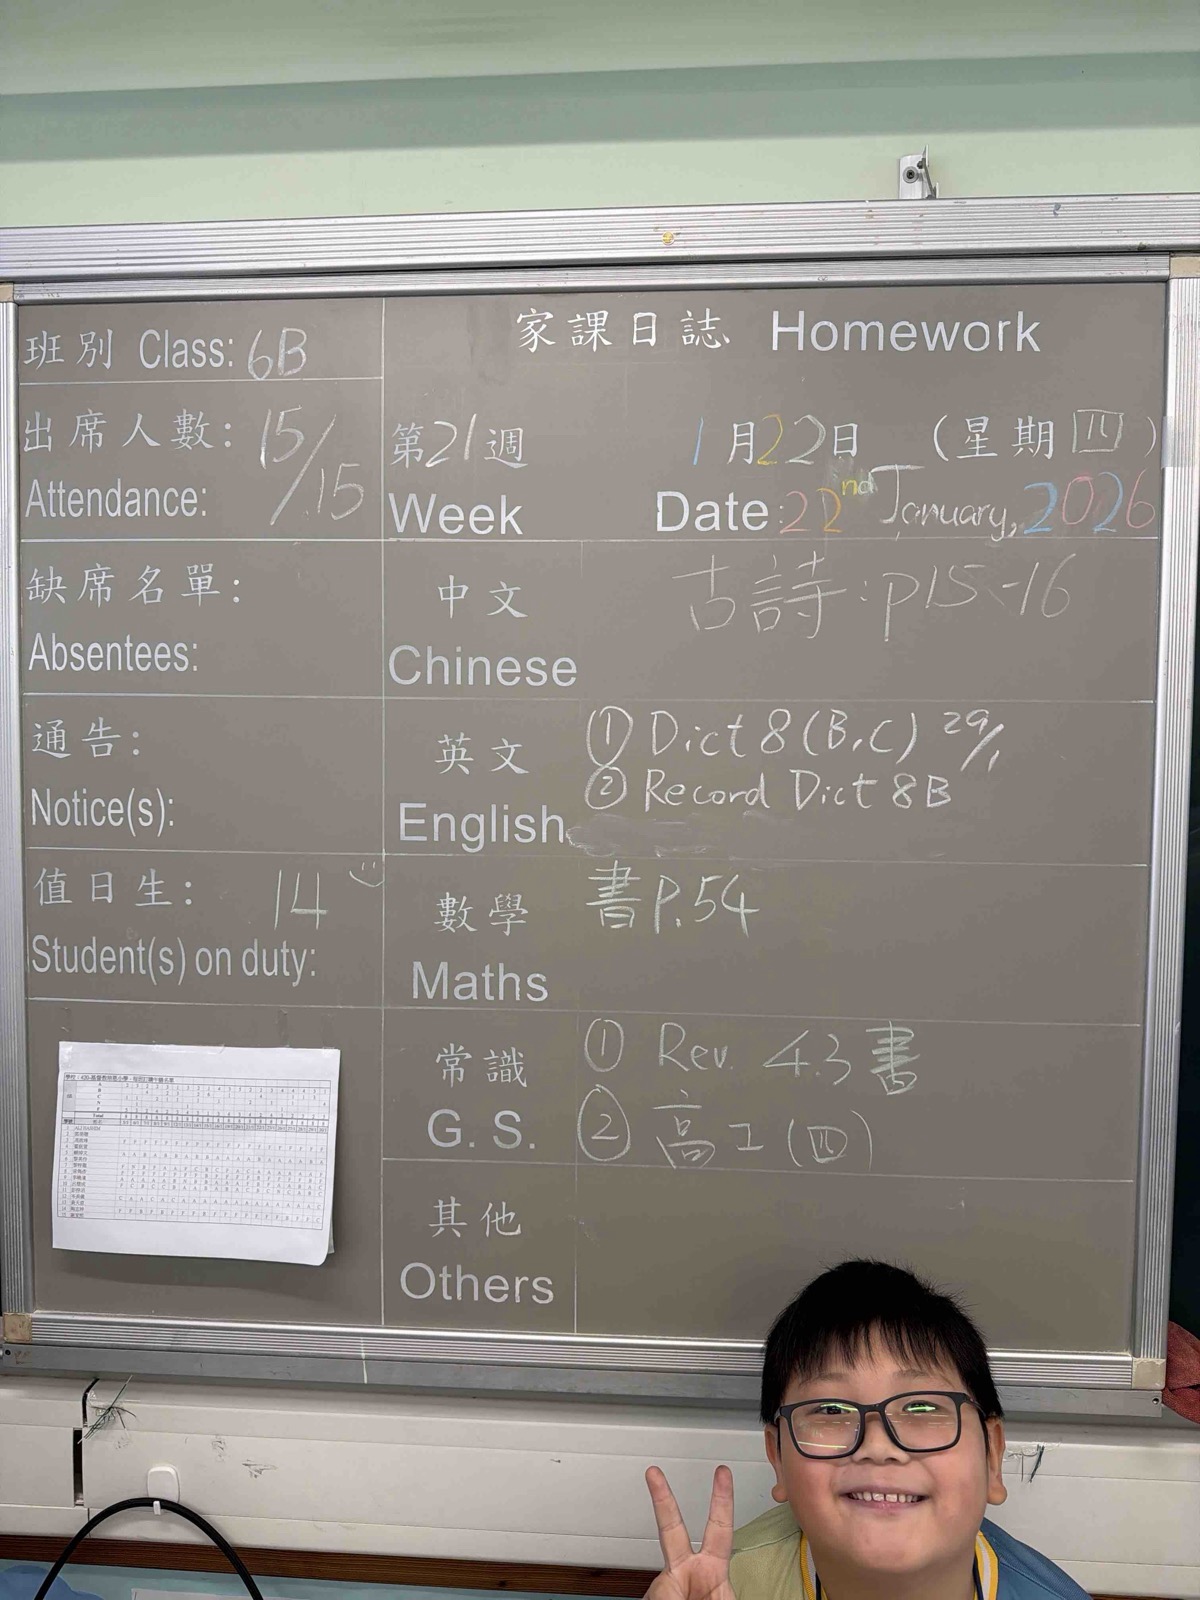 班別 Class: 6B
出席人數: 15/15
Attendance:
缺席名單:
Absentees:
通告:
Notice(s):
值日生: 14
Student(s) on duty:
家課日誌 Homework
第21週 1月22日 (星期四)
Week Date: 22nd January, 2026
中文 古詩:p15-16
Chinese
英文 ① Dict 8 (B,C) 29/1
② Record Dict 8B
English
數學 書P.54
Maths
常識 ① Rev. 4.3 書
G. S. ② 高工(四)
其他
Others